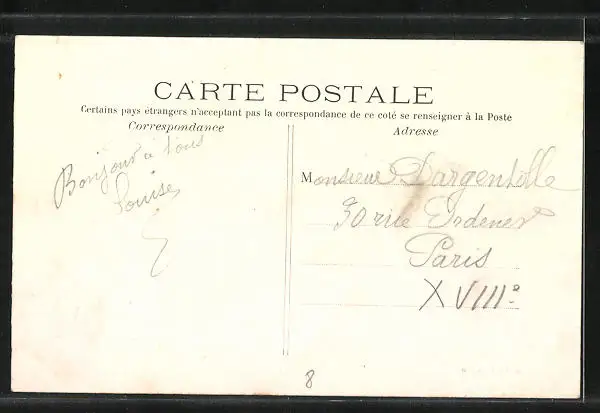 CARTE POSTALE
Certains pays étrangers n'acceptant pas la correspondance de ce coté se renseigner à la Poste
Correspondance
Adresse
Bonjour à tous
Louise
Monsieur Dargentolle
30 rue Ordener
Paris
XVIIIe
8